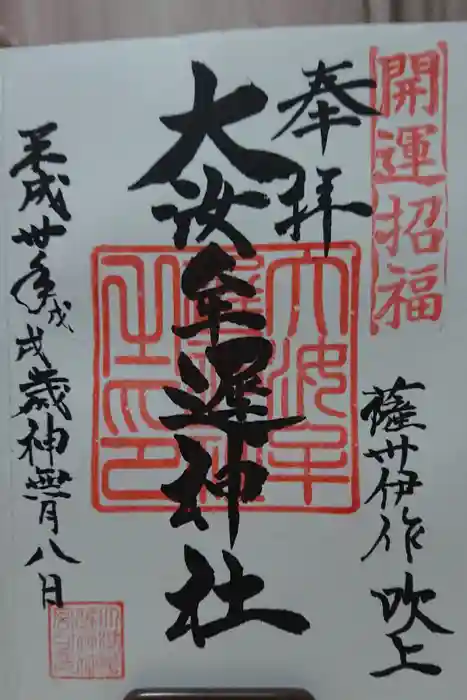 開運招福
奉拝
薩州伊作 吹上
大汝牟遅神社
平成卅年戊戌歳神無月八日